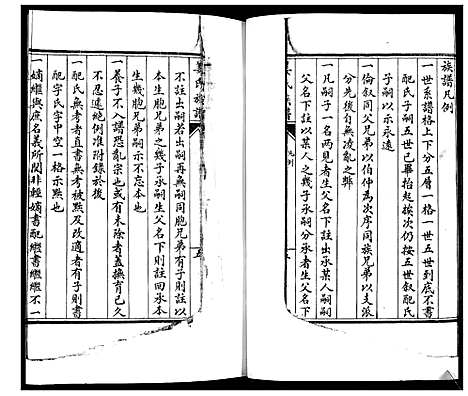 族譜凡例
一世系譜格上下分五層一格一世五世到底不書
配氏子嗣五世已畢抬起挨次仍按五世叙配氏
子嗣以示永遠
一倫叙同父兄弟以伯仲為次序同族兄弟以支派
分先後自無凌亂之弊
一凡子嗣一名两見者生父名下註出承某人嗣嗣
父名下註以某人之幾子承嗣分承者生父名下
不註出嗣若出嗣再無嗣同胞兄弟有子則註以
本生胞兄弟之幾子承嗣生父名下則註以承本
生幾胞兄弟嗣示不忘本也
一養子不入譜恐亂宗也或有未除者蓋撫育已久
不忍遽絶例准附錄於後
一配氏無考者直書無考被黜及改適者有子則書
配字氏字中空一格示貶也
一嫡繼與庶名義所関非輕嫡書配繼書繼繼不一
族譜
五